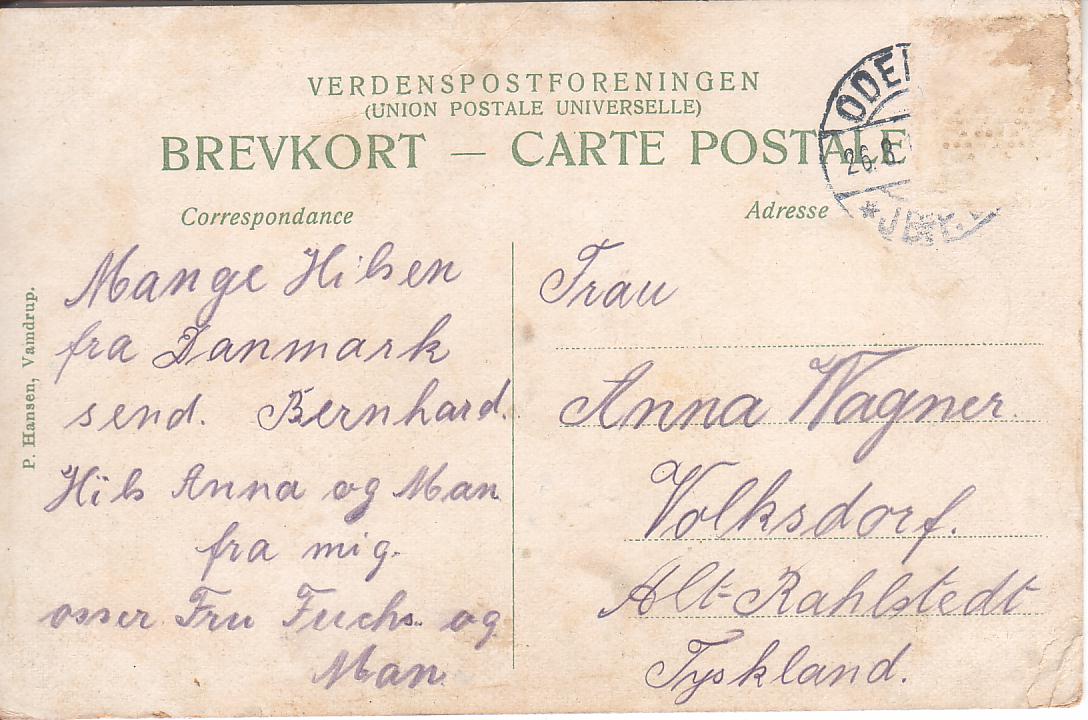 VERDENSPOSTFORENINGEN
(UNION POSTALE UNIVERSELLE)
BREVKORT — CARTE POSTALE
ODE
26.8.
Correspondance
Adresse
P. Hansen, Vamdrup.
Mange Hilsen
fra Danmark
send. Bernhard.
Hils Anna og Man
fra mig.
osser Fru Fuchs og
Man
Frau
Anna Wagner.
Volksdorf.
Alt-Rahlstedt
Tyskland.